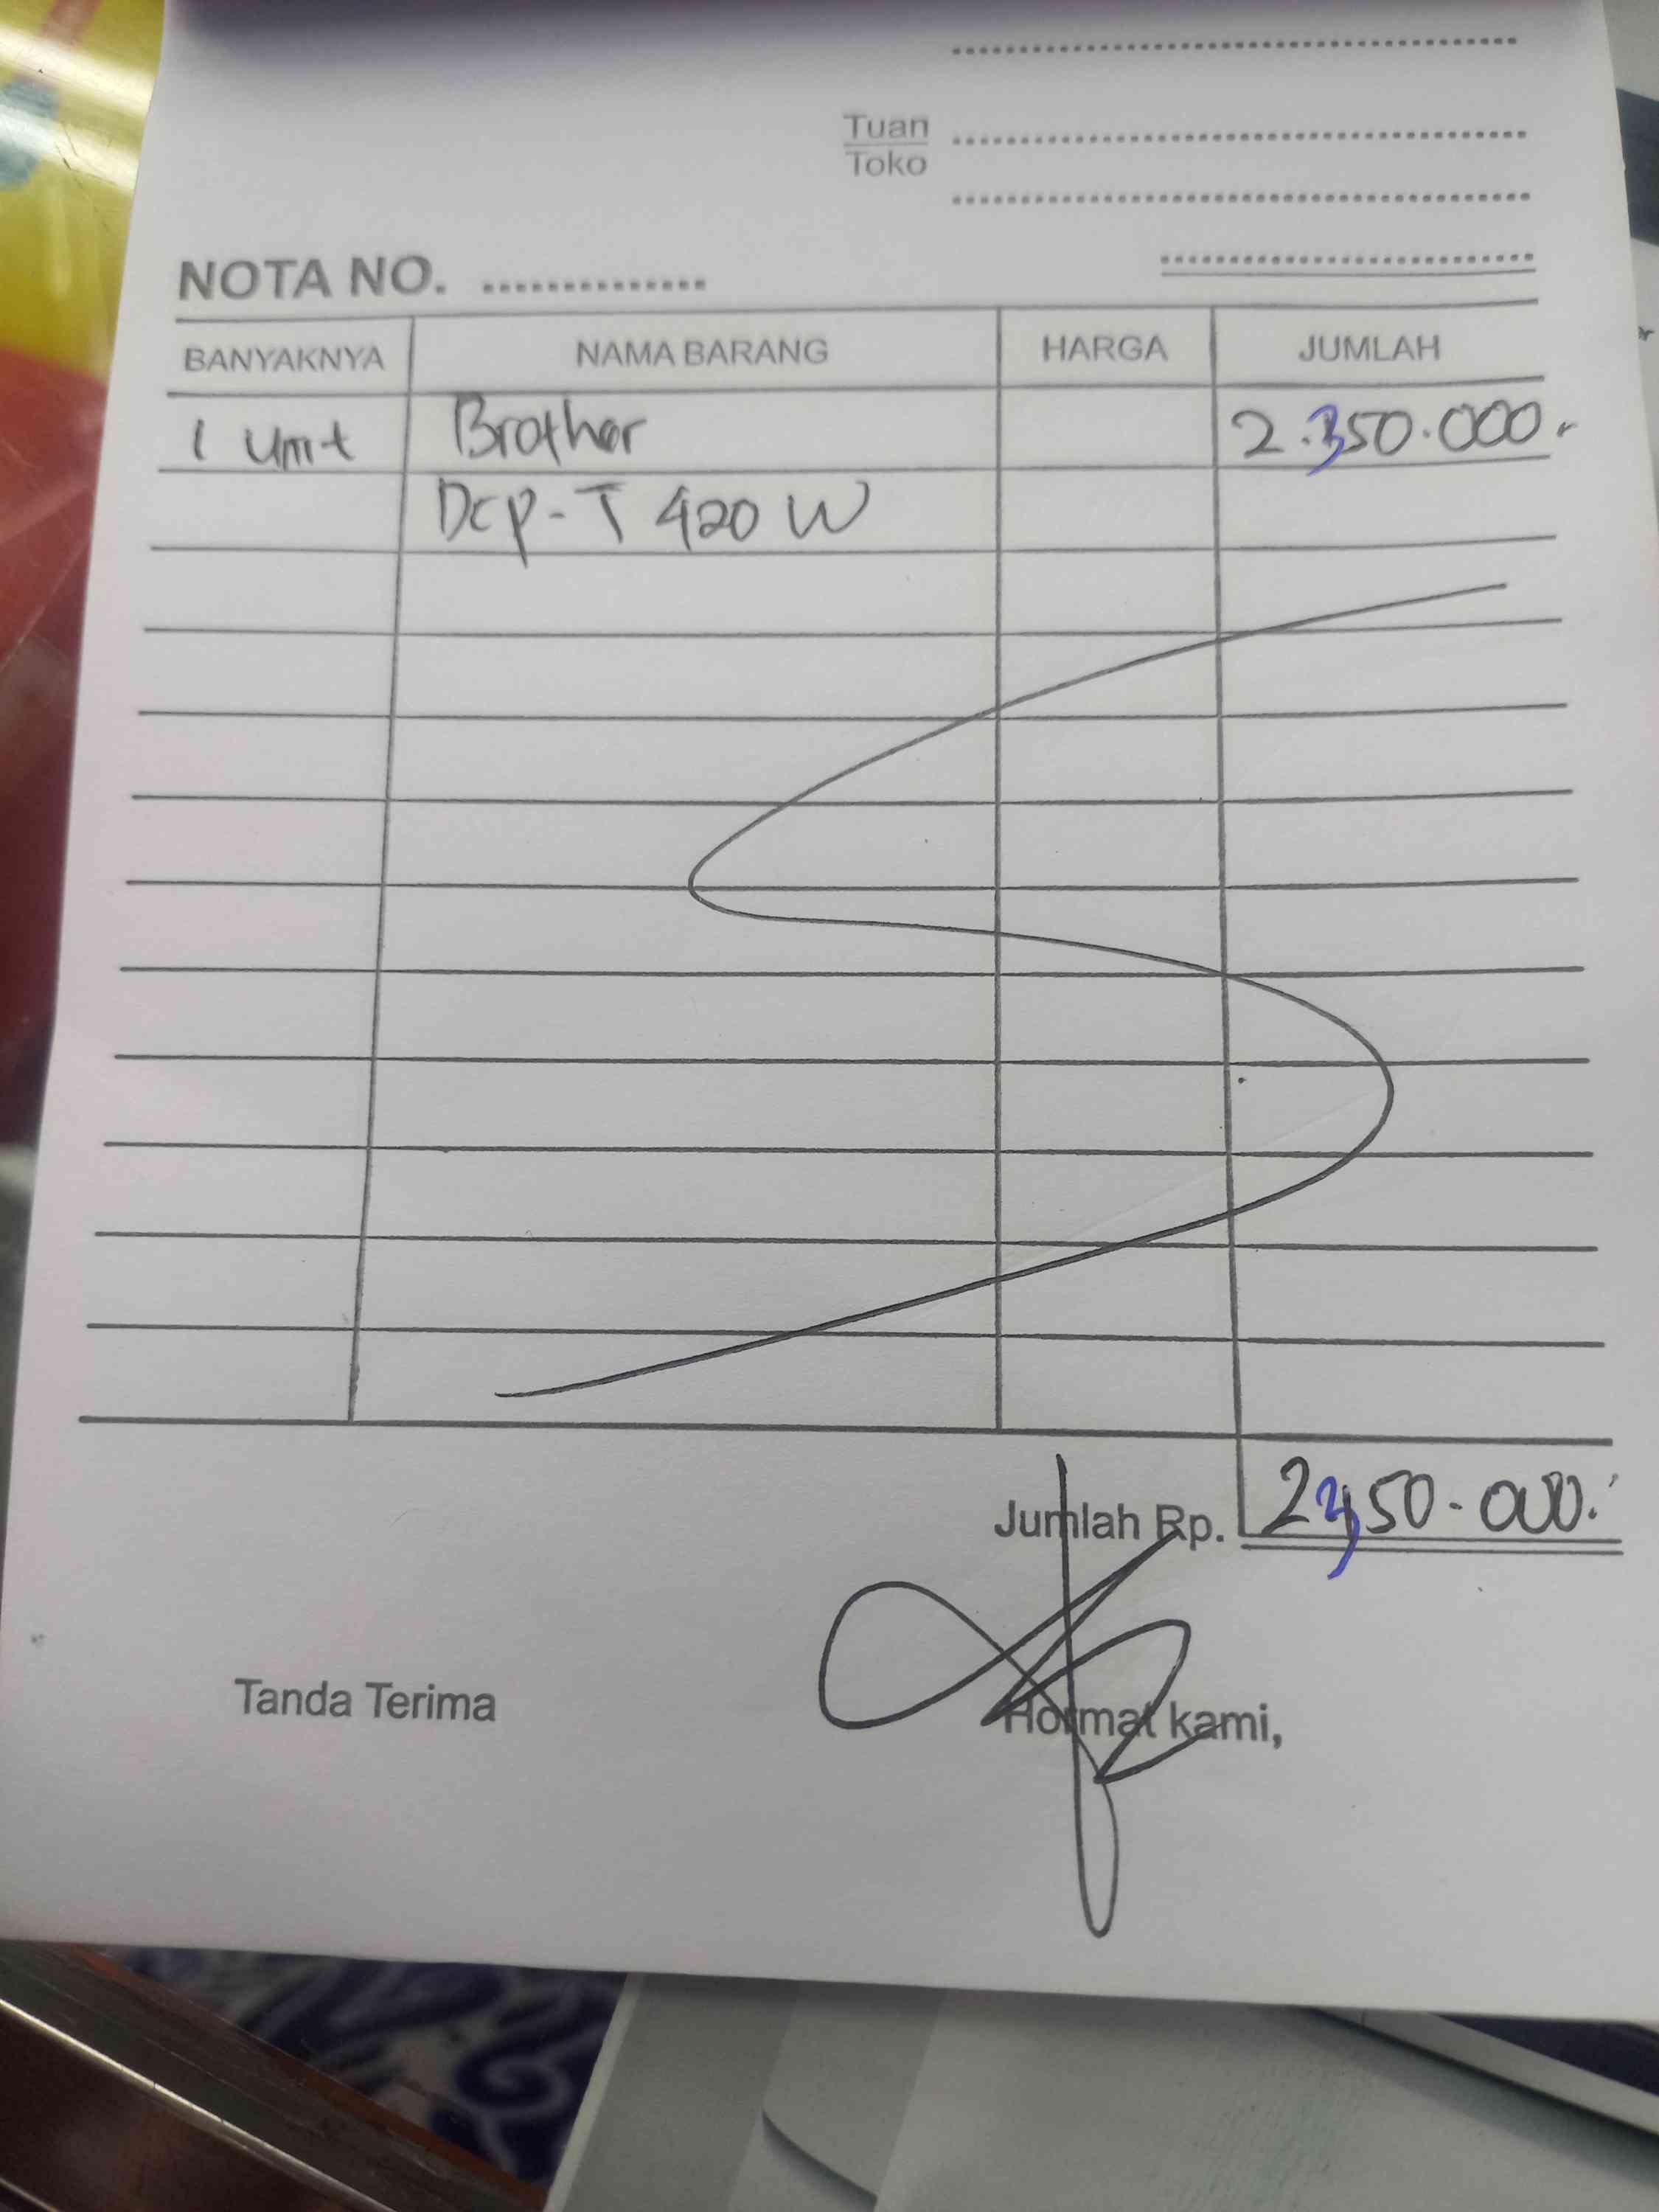 Tuan
Toko
NOTA NO.
BANYAKNYA NAMA BARANG HARGA JUMLAH
1 Unit Brother 2.350.000.
Dcp-T 420 W
Jumlah Rp. 2350-000.
Tanda Terima Hormat kami,